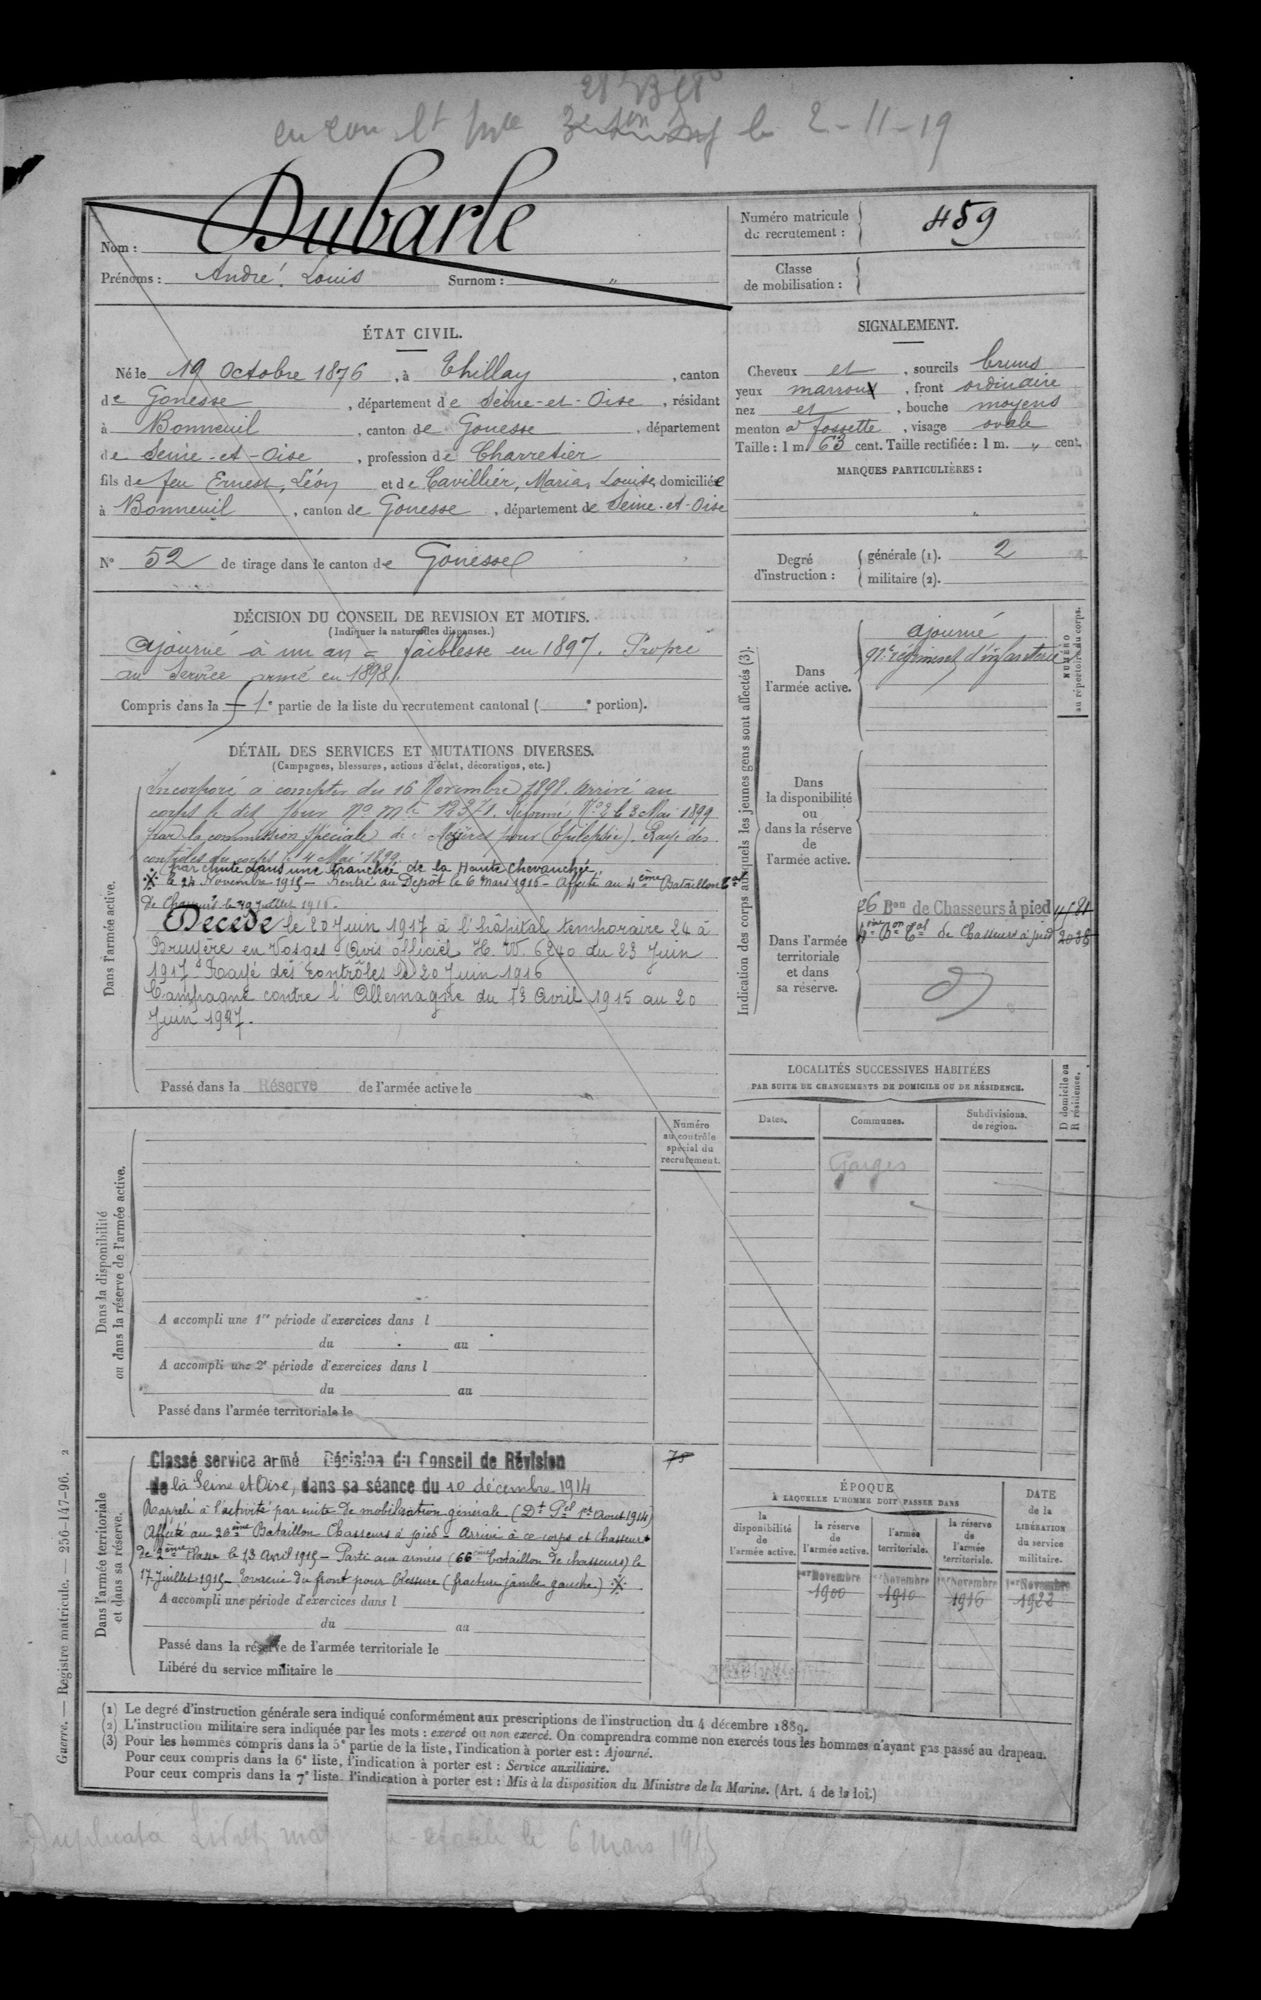 28e B
le 2-11-19
Nom : Dubarle
Prénoms : André Louis Surnom : "
Numéro matricule
du recrutement : 459
Classe
de mobilisation :
ÉTAT CIVIL.
Né le 19 Octobre 1876, à Thillay, canton
de Gonesse, département de Seine-et-Oise, résidant
à Bonneuil, canton de Gonesse, département
de Seine-et-Oise, profession de Charretier
fils de feu Ernest, Léon et de Cavillier, Maria, Louise, domiciliée
à Bonneuil, canton de Gonesse, département de Seine-et-Oise
N° 52 de tirage dans le canton de Gonesse
SIGNALEMENT.
Cheveux et, sourcils bruns
yeux marrons, front ordinaire
nez et, bouche moyens
menton à fossette, visage ovale
Taille : 1 m 63 cent. Taille rectifiée : 1 m. " cent.
MARQUES PARTICULIÈRES :
Degré
d'instruction :
générale (1). 2
militaire (2).
DÉCISION DU CONSEIL DE REVISION ET MOTIFS.
(Indiquer la nature des dispenses.)
Ajourné à un an = faiblesse en 1897. Propre
au Service armé en 1898.
Compris dans la 1e partie de la liste du recrutement cantonal ( e portion).
DÉTAIL DES SERVICES ET MUTATIONS DIVERSES.
(Campagnes, blessures, actions d'éclat, décorations, etc.)
Dans l'armée active.
Incorporé à compter du 16 Novembre 1898. Arrivé au
corps le dit jour No mle 12371. Réformé No 2 le 3 Mai 1899
par la commission spéciale de Mézières pour (épilepsie). Rayé des
contrôles du corps le 4 Mai 1899.
par chute dans une tranchée de la Haute Chevauchée
le 24 Novembre 1915 - Rentré au Dépôt le 6 mars 1916 - Affecté au 4ème Bataillon Tal
de Chasseurs le 29 juillet 1916.
Décédé le 20 Juin 1917 à l'hôpital temporaire 24 à
Bruyère en Vosges Avis officiel H. W. 6240 du 23 Juin
1917. Rayé des contrôles le 20 Juin 1916
Campagne contre l'Allemagne du 13 Avril 1915 au 20
Juin 1927.
Passé dans la Réserve de l'armée active le
Indication des corps auxquels les jeunes gens sont affectés (3).
NUMÉRO
au répertoire du corps.
Dans
l'armée active.
Ajourné
91e régiment d'infanterie
Dans
la disponibilité
ou
dans la réserve
de
l'armée active.
Dans l'armée
territoriale
et dans
sa réserve.
26 Bon de Chasseurs à pied 4581
4ème Bon Tal de Chasseurs à pied 2036
LOCALITÉS SUCCESSIVES HABITÉES
PAR SUITE DE CHANGEMENTS DE DOMICILE OU DE RÉSIDENCE.
Dates.
Communes.
Subdivisions
de région.
D domicile ou
R résidence.
Garges
Dans la disponibilité
ou dans la réserve de l'armée active.
Numéro
au contrôle
spécial du
recrutement.
A accompli une 1re période d'exercices dans l
du au
A accompli une 2e période d'exercices dans l
du au
Passé dans l'armée territoriale le
Dans l'armée territoriale
et dans sa réserve.
Classé service armé Décision du Conseil de Révision
de la Seine et Oise, dans sa séance du 10 décembre 1914
75
Rappelé à l'activité par suite de mobilisation générale (Dt Pel 1er Aout 1914)
Affecté au 26ème Bataillon Chasseurs à pied - Arrivé à ce corps et chasseur
de 2ème classe le 13 Avril 1915 - Parti aux armées (66ème bataillon de chasseurs) le
17 Juillet 1915 - Évacué du front pour blessure (fracture jambe gauche.)
A accompli une période d'exercices dans l
du au
Passé dans la réserve de l'armée territoriale le
Libéré du service militaire le
ÉPOQUE
À LAQUELLE L'HOMME DOIT PASSER DANS
la
disponibilité
de
l'armée active.
la réserve
de
l'armée active.
l'armée
territoriale.
la réserve
de
l'armée
territoriale.
DATE
de la
LIBÉRATION
du service
militaire.
1er Novembre
1900
1er Novembre
1910
1er Novembre
1916
1er Novembre
1922
(1) Le degré d'instruction générale sera indiqué conformément aux prescriptions de l'instruction du 4 décembre 1889.
(2) L'instruction militaire sera indiquée par les mots : exercé ou non exercé. On comprendra comme non exercés tous les hommes n'ayant pas passé au drapeau.
(3) Pour les hommes compris dans la 5e partie de la liste, l'indication à porter est : Ajourné.
Pour ceux compris dans la 6e liste, l'indication à porter est : Service auxiliaire.
Pour ceux compris dans la 7e liste l'indication à porter est : Mis à la disposition du Ministre de la Marine. (Art. 4 de la loi.)
Guerre. — Registre matricule. — 256-147-96. 2
Duplicata Livret le 6 Mars 1915